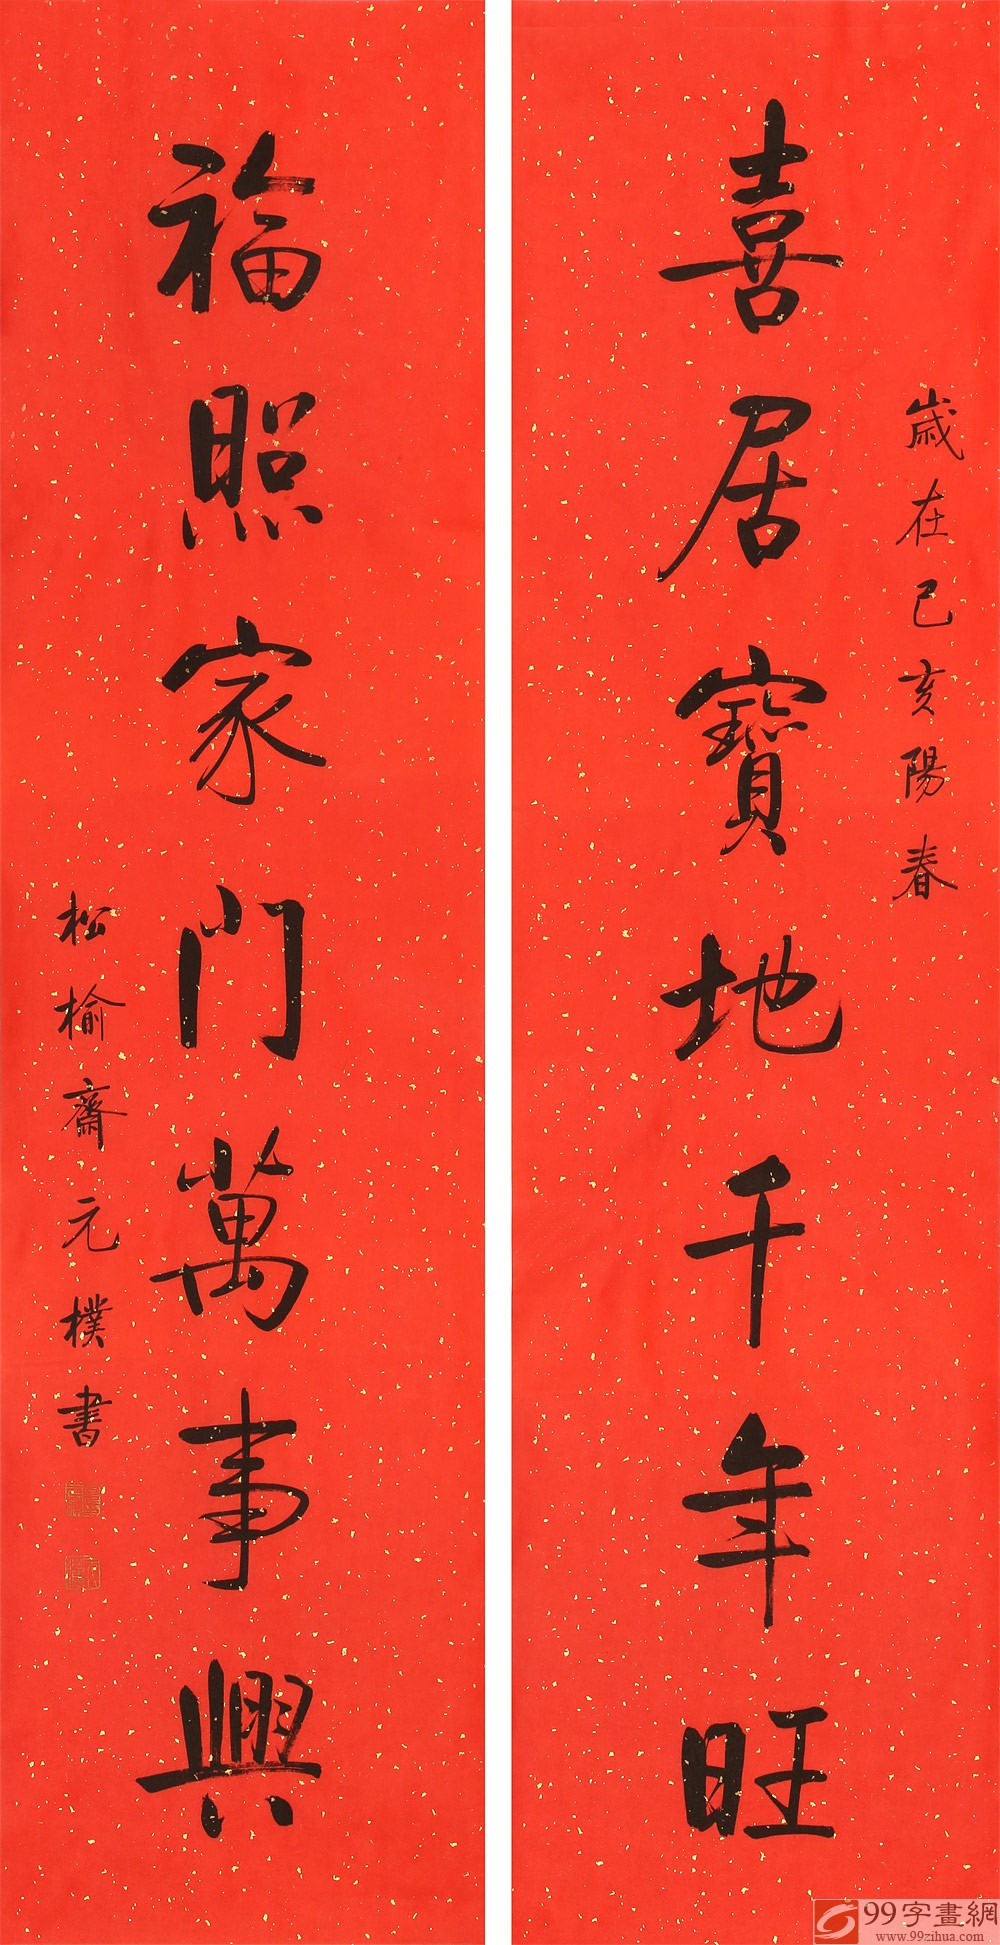 歲在己亥陽春
喜居寶地千年旺
福照家門萬事興
松榆齋元樸書
99字畫網
www.99zihua.com